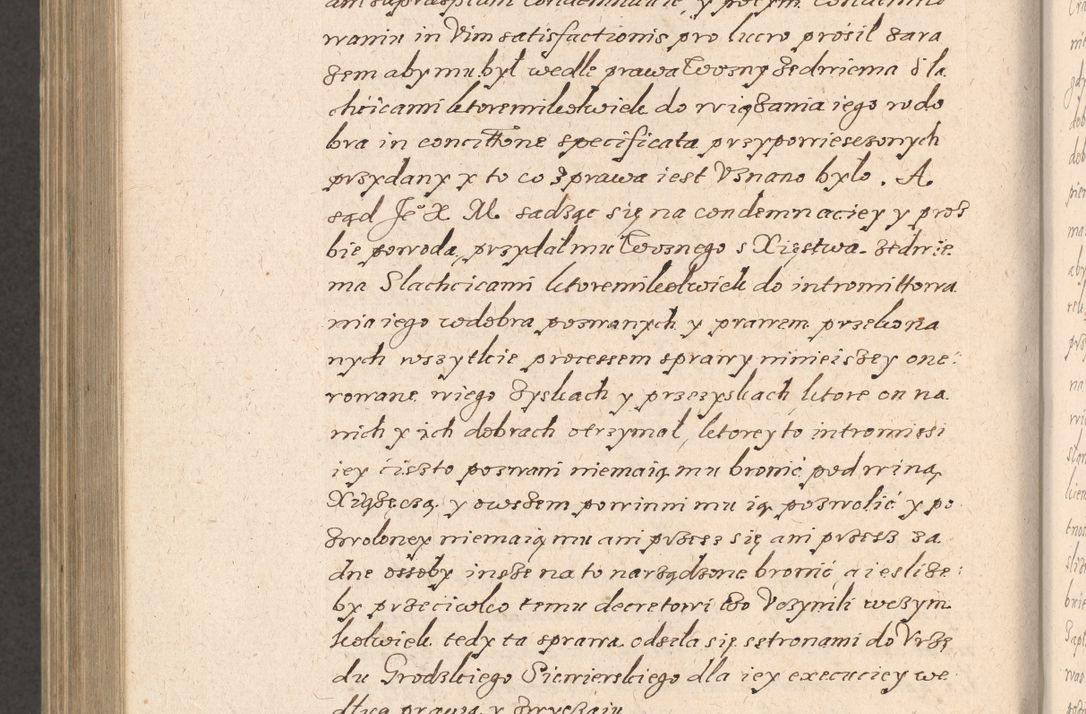 waniu in Vim satisfactionis pro lucro prosił zara
zem aby mu był wedle prawa Wozny zedwiema śla
chcicami ktoremikolwiek do wiązania iego w do
bra in concittōne specificata przypowiesczonych
przydany y to co z prawa iest Vznano było. A
sąd Je° X M. sadząc się na condemnaciey y proź
bie powoda, przydał mu Woznego s Xięstwa zedwie
ma Slachcicami ktoremikolwiek do intromittowa
nia iego w dobra pozwanych y prawem przekona
nych wszytkie processem sprawy ninieiszey one:
rowane wiego zyskach y przezyskach, ktore on na
nich y ich dobrach otrzymał, ktorey to intromissi
iey ciszto pozwani niemaią mu bronić pod winą
Xiązęczą y owszem powinni mu ią pozwolić y po
zwoloney niemaią mu ani przez się ani przesz za
dne ossoby insze na to narządzone bronić, a iesliże:
by przeciwko temu decretowi to Vczynili w czym
kolwiek tedy ta sprawa odseła się sstronami do Vrzę
du Grodzkiego Siewierskiego dla iey execuciey we
dług prawa y zwyczaiu